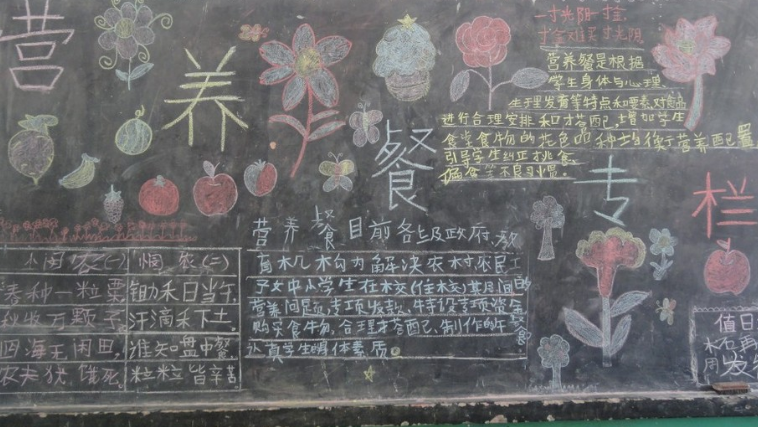 营养餐专栏
一寸光阴一寸金
寸金难买寸光阴
营养餐是根据
学生身体与心理
生理发育等特点和要素对食品
进行合理安排和才合配,增加学生
食学食物的花色品种均衡营养配置
引导学生纠正挑食
偏食等不良习惯。
悯农(一) 悯农(二)
春种一粒粟 锄禾日当午,
秋收万颗子 汗滴禾下土,
四海无闲田, 谁知盘中餐
农夫犹饿死 粒粒皆辛苦
营养餐目前各级政府、教
育机构为解决农村农民工
子女中小学生在校(住校)其间的
营养问题
购买食物,合理
学生身体素质。
值日
发